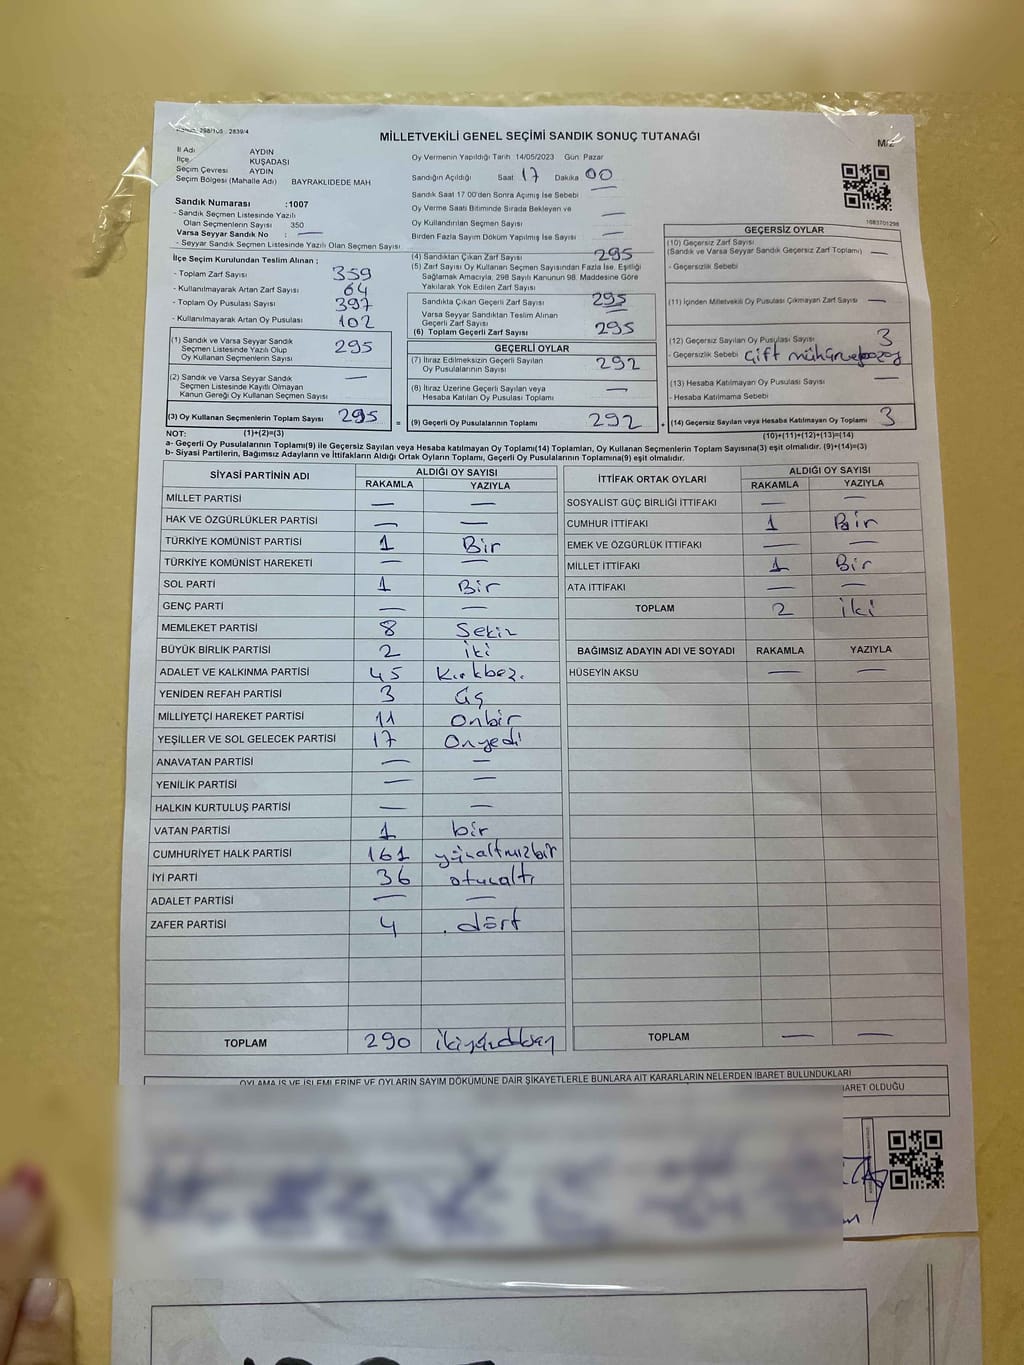 298/105 : 2839/4
MİLLETVEKİLİ GENEL SEÇİMİ SANDIK SONUÇ TUTANAĞI
İl Adı AYDIN
İlçe KUŞADASI
Seçim Çevresi AYDIN
Seçim Bölgesi (Mahalle Adı) BAYRAKLIDEDE MAH
Sandık Numarası :1007
- Sandık Seçmen Listesinde Yazılı
Olan Seçmenlerin Sayısı 350
Varsa Seyyar Sandık No : —
- Seyyar Sandık Seçmen Listesinde Yazılı Olan Seçmen Sayısı
Oy Vermenin Yapıldığı Tarih 14/05/2023 Gün Pazar
Sandığın Açıldığı Saat 17 Dakika 00
Sandık Saat 17 00'den Sonra Açımış İse Sebebi —
Oy Verme Saati Bitiminde Sırada Bekleyen ve
Oy Kullandırılan Seçmen Sayısı —
Birden Fazla Sayım Döküm Yapılmış İse Sayısı —
1683701298
İlçe Seçim Kurulundan Teslim Alınan ;
- Toplam Zarf Sayısı 359
- Kullanılmayarak Artan Zarf Sayısı 64
- Toplam Oy Pusulası Sayısı 397
- Kullanılmayarak Artan Oy Pusulası 102
(1) Sandık ve Varsa Seyyar Sandık
Seçmen Listesinde Yazılı Olup
Oy Kullanan Seçmenlerin Sayısı 295
(2) Sandık ve Varsa Seyyar Sandık
Seçmen Listesinde Kayıtlı Olmayan
Kanun Gereği Oy Kullanan Seçmen Sayısı —
(3) Oy Kullanan Seçmenlerin Toplam Sayısı 295
(4) Sandıktan Çıkan Zarf Sayısı 295
(5) Zarf Sayısı Oy Kullanan Seçmen Sayısından Fazla İse, Eşitliği
Sağlamak Amacıyla, 298 Sayılı Kanunun 98. Maddesine Göre
Yakılarak Yok Edilen Zarf Sayısı —
Sandıkta Çıkan Geçerli Zarf Sayısı 295
Varsa Seyyar Sandıktan Teslim Alınan
Geçerli Zarf Sayısı —
(6) Toplam Geçerli Zarf Sayısı 295
GEÇERLİ OYLAR
(7) İtiraz Edilmeksizin Geçerli Sayılan
Oy Pusulalarının Sayısı 292
(8) İtiraz Üzerine Geçerli Sayılan veya
Hesaba Katılan Oy Pusulası Toplamı —
= (9) Geçerli Oy Pusulalarının Toplamı 292
GEÇERSİZ OYLAR
(10) Geçersiz Zarf Sayısı
(Sandık ve Varsa Seyyar Sandık Geçersiz Zarf Toplamı) —
- Geçersizlik Sebebi
(11) İçinden Milletvekili Oy Pusulası Çıkmayan Zarf Sayısı —
(12) Geçersiz Sayılan Oy Pusulası Sayısı 3
- Geçersizlik Sebebi Çift mühür
(13) Hesaba Katılmayan Oy Pusulası Sayısı —
- Hesaba Katılmama Sebebi
+ (14) Geçersiz Sayılan veya Hesaba Katılmayan Oy Toplamı 3
NOT: (1)+(2)=(3) (10)+(11)+(12)+(13)=(14)
a- Geçerli Oy Pusulalarının Toplamı(9) ile Geçersiz Sayılan veya Hesaba katılmayan Oy Toplamı(14) Toplamları, Oy Kullanan Seçmenlerin Toplam Sayısına(3) eşit olmalıdır. (9)+(14)=(3)
b- Siyasi Partilerin, Bağımsız Adayların ve İttifakların Aldığı Ortak Oyların Toplamı, Geçerli Oy Pusulalarının Toplamına(9) eşit olmalıdır.
SİYASİ PARTİNİN ADI ALDIĞI OY SAYISI
RAKAMLA YAZIYLA
MİLLET PARTİSİ — —
HAK VE ÖZGÜRLÜKLER PARTİSİ — —
TÜRKİYE KOMÜNİST PARTİSİ 1 Bir
TÜRKİYE KOMÜNİST HAREKETİ — —
SOL PARTİ 1 Bir
GENÇ PARTİ — —
MEMLEKET PARTİSİ 8 Sekiz
BÜYÜK BİRLİK PARTİSİ 2 iki
ADALET VE KALKINMA PARTİSİ 45 Kırkbeş.
YENİDEN REFAH PARTİSİ 3 üş
MİLLİYETÇİ HAREKET PARTİSİ 11 onbir
YEŞİLLER VE SOL GELECEK PARTİSİ 17 Onyedi
ANAVATAN PARTİSİ — —
YENİLİK PARTİSİ — —
HALKIN KURTULUŞ PARTİSİ — —
VATAN PARTİSİ 1 bir
CUMHURİYET HALK PARTİSİ 161 yüzaltmızbir
İYİ PARTİ 36 otuzaltı
ADALET PARTİSİ — —
ZAFER PARTİSİ 4 dört
TOPLAM 290 ikiyüzdoksan
İTTİFAK ORTAK OYLARI ALDIĞI OY SAYISI
RAKAMLA YAZIYLA
SOSYALİST GÜÇ BİRLİĞİ İTTİFAKI — —
CUMHUR İTTİFAKI 1 Bir
EMEK VE ÖZGÜRLÜK İTTİFAKI — —
MİLLET İTTİFAKI 1 Bir
ATA İTTİFAKI — —
TOPLAM 2 iki
BAĞIMSIZ ADAYIN ADI VE SOYADI RAKAMLA YAZIYLA
HÜSEYİN AKSU — —
TOPLAM — —
OYLAMA İŞ VE İŞLEMLERİNE VE OYLARIN SAYIM DÖKÜMÜNE DAİR ŞİKAYETLERLE BUNLARA AİT KARARLARIN NELERDEN İBARET BULUNDUKLARI
İBARET OLDUĞU